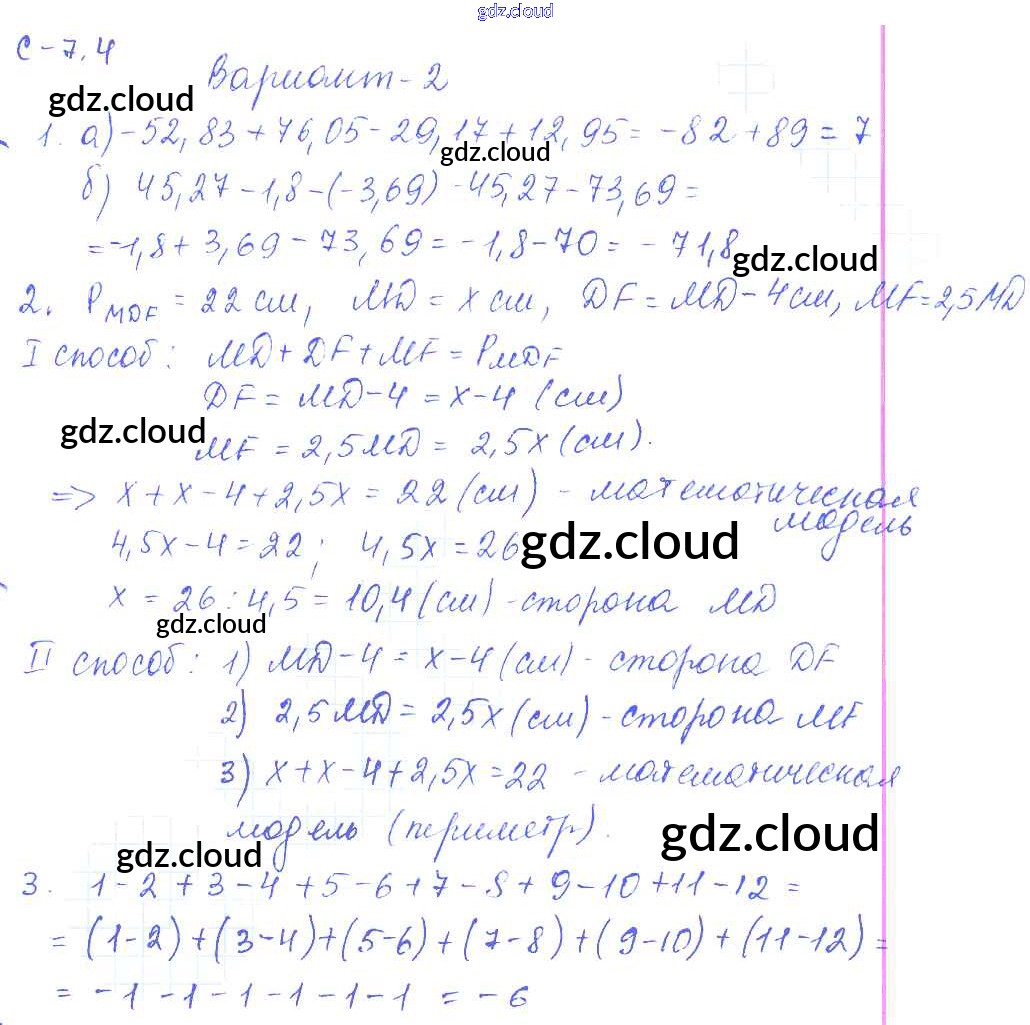 gdz.cloud
С-7.4
Вариант-2
gdz.cloud
1. а) -52,83+76,05-29,17+12,95= -82+89=7
gdz.cloud
б) 45,27-1,8-(-3,69)-45,27-73,69=
=-1,8+3,69-73,69=-1,8-70= -71,8
gdz.cloud
2. P MDF = 22 см, MD = x см, DF = MD-4см, MF=2,5MD
I способ: MD+DF+MF=P MDF
DF = MD-4 = x-4 (см)
gdz.cloud
MF = 2,5MD = 2,5x (см).
=> x+x-4+2,5x = 22 (см) - математическая
модель
4,5x-4=22; 4,5x=26
gdz.cloud
x = 26:4,5=10,4 (см) - сторона MD
gdz.cloud
II способ: 1) MD-4 = x-4 (см) - сторона DF
2) 2,5MD=2,5x (см) - сторона MF
3) x+x-4+2,5x=22 - математическая
модель (периметр).
gdz.cloud
gdz.cloud
3. 1-2+3-4+5-6+7-8+9-10+11-12=
= (1-2)+(3-4)+(5-6)+(7-8)+(9-10)+(11-12)=
= -1-1-1-1-1-1 = -6